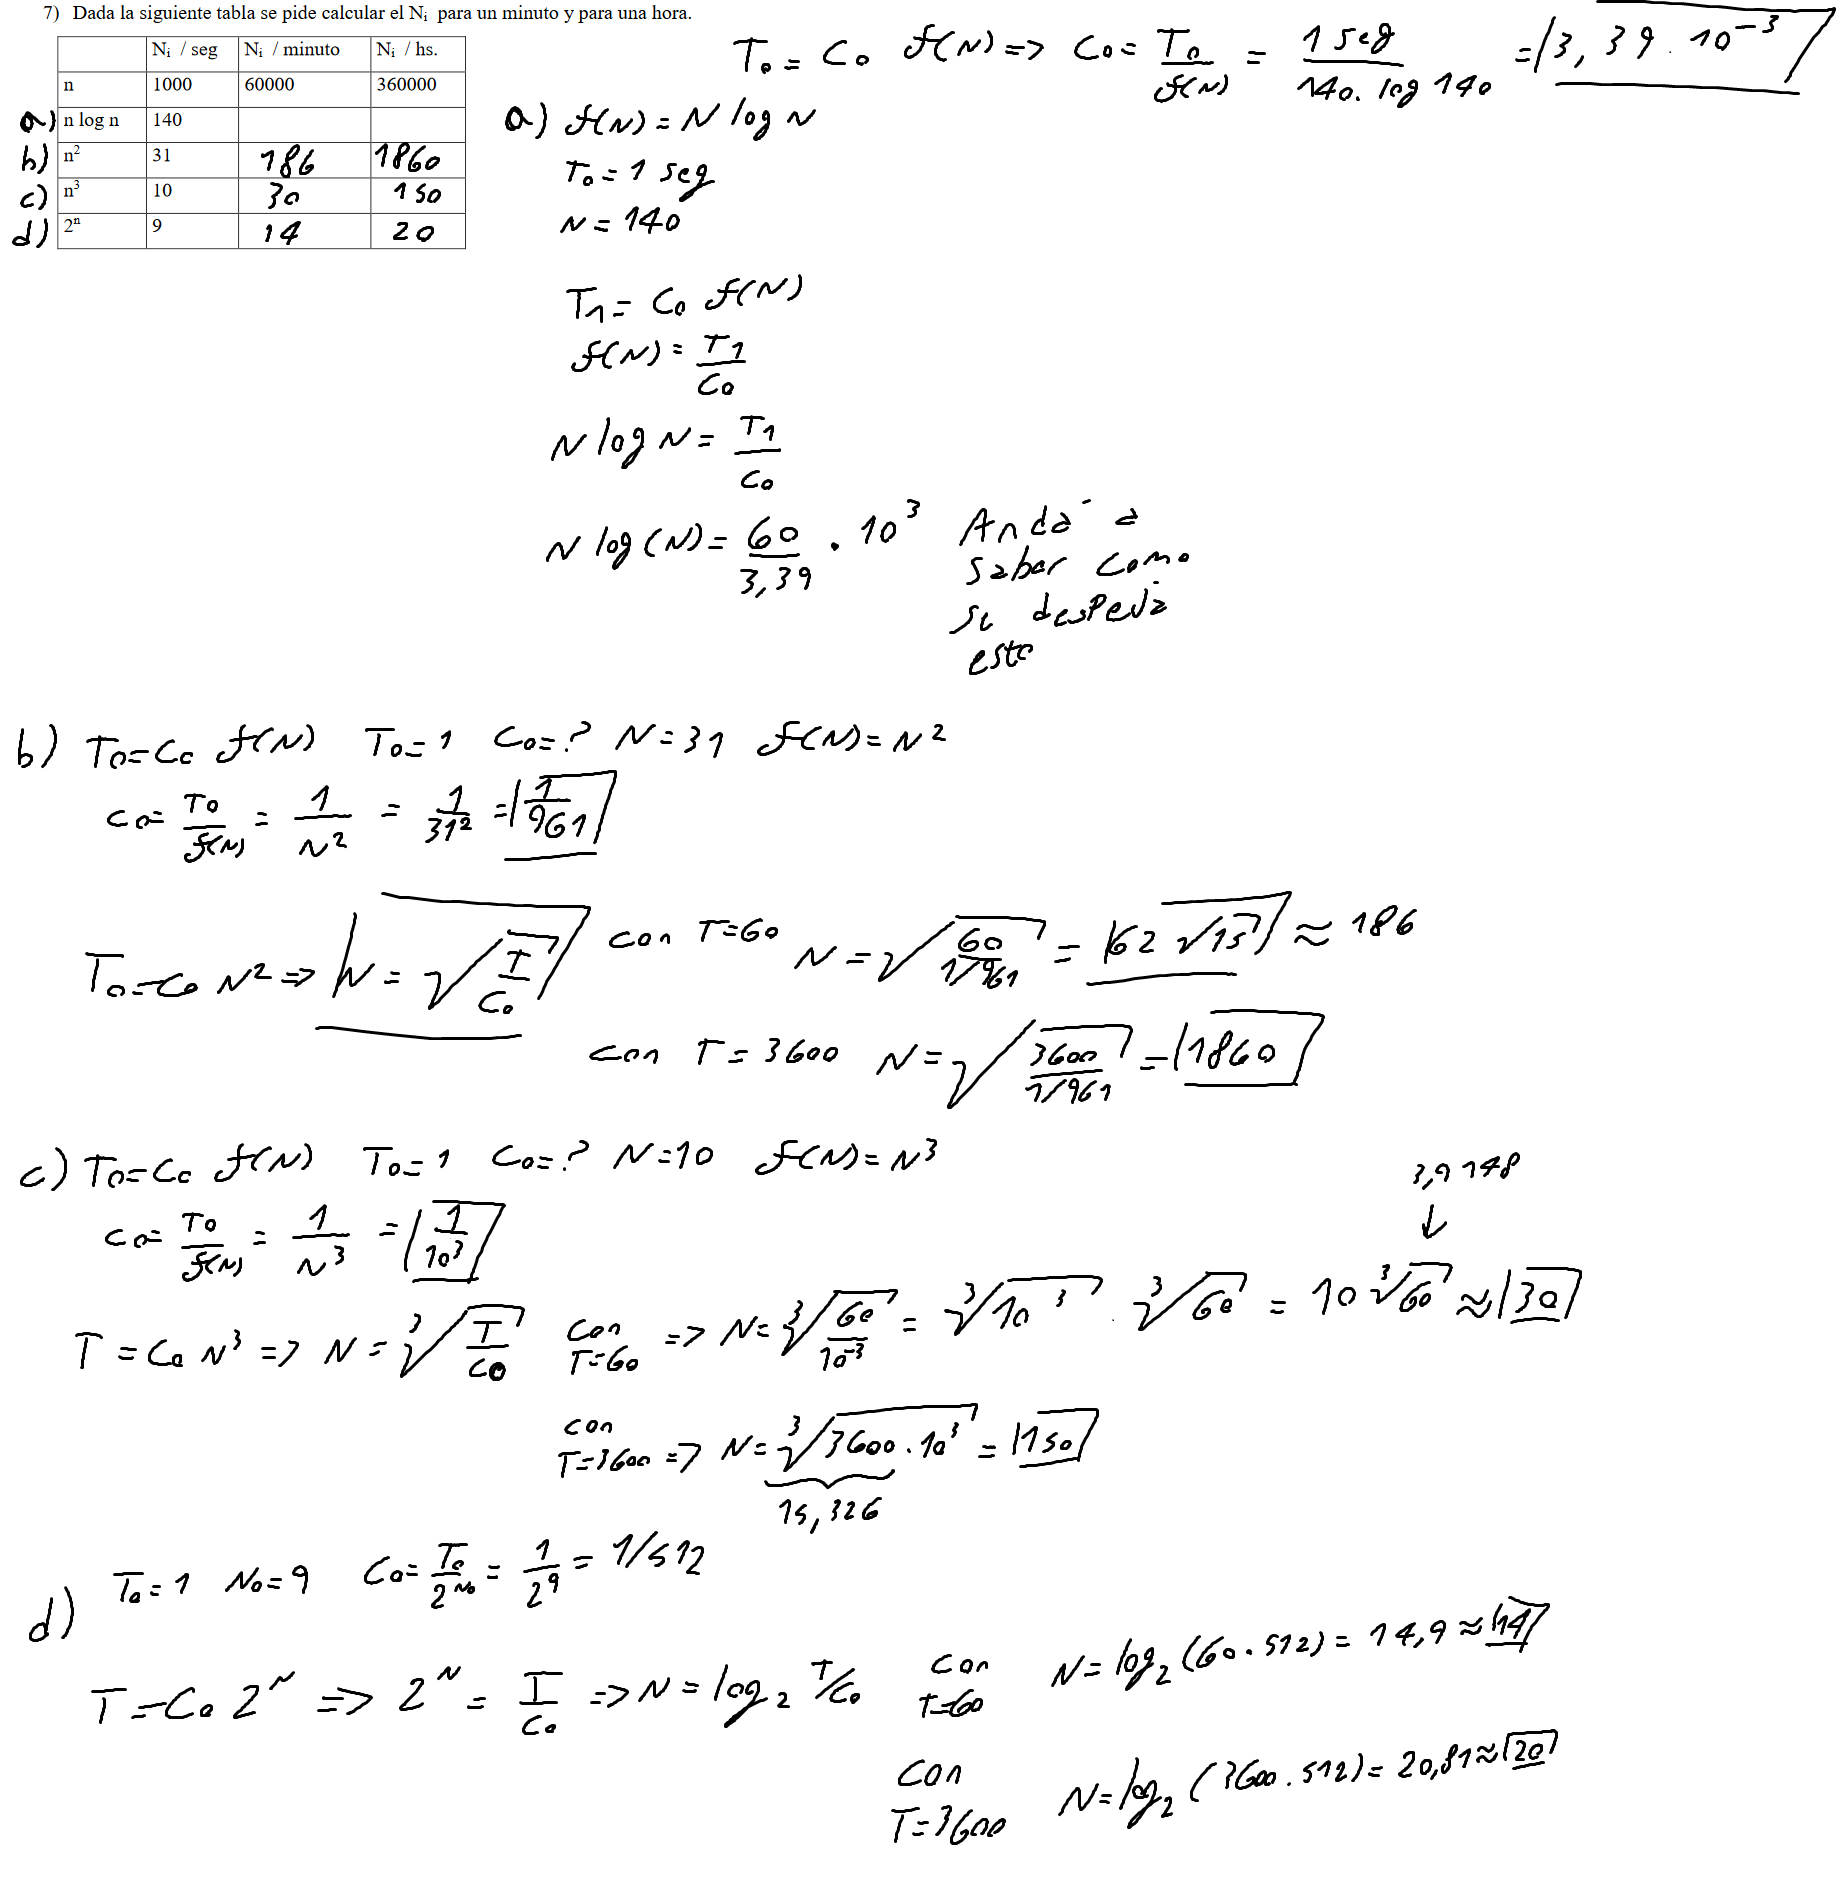 7) Dada la siguiente tabla se pide calcular el Ni para un minuto y para una hora.
Ni / seg Ni / minuto Ni / hs.
n 1000 60000 360000
a) n log n 140
b) n² 31 186 1860
c) n³ 10 30 150
d) 2ⁿ 9 14 20
T₀ = C₀ f(N) => C₀ = T₀/f(N) = 1 seg/140. log 140 = 3,39 . 10⁻³
a) f(N) = N log N
T₀ = 1 seg
N = 140
T₁ = C₀ f(N)
f(N) = T₁/C₀
N log N = T₁/C₀
N log (N) = 60/3,39 . 10³ Andá a
saber como
se despeja
esto
b) T₀ = C₀ f(N) T₀ = 1 C₀ = ? N = 31 f(N) = N²
C₀ = T₀/f(N) = 1/N² = 1/31² = 1/961
T₀ = C₀ N² => N = √(T/C₀) con T=60 N = √(60/1/961) = 62 √15 ≈ 186
con T = 3600 N = √(3600/1/961) = 1860
c) T₀ = C₀ f(N) T₀ = 1 C₀ = ? N = 10 f(N) = N³
3,9148
↓
C₀ = T₀/f(N) = 1/N³ = 1/10³
T = C₀ N³ => N = ³√(T/C₀) con T=60 => N = ³√(60/10⁻³) = ³√10³ . ³√60 = 10 ³√60 ≈ 30
con
T=3600 => N = ³√(3600 . 10³) = 150
15,326
d) T₀ = 1 N₀ = 9 C₀ = T₀/2^N₀ = 1/2⁹ = 1/512
T = C₀ 2ᴺ => 2ᴺ = T/C₀ => N = log₂ T/C₀ con T=60 N = log₂ (60 . 512) = 14,9 ≈ 14
con
T=3600 N = log₂ (3600 . 512) = 20,81 ≈ 20